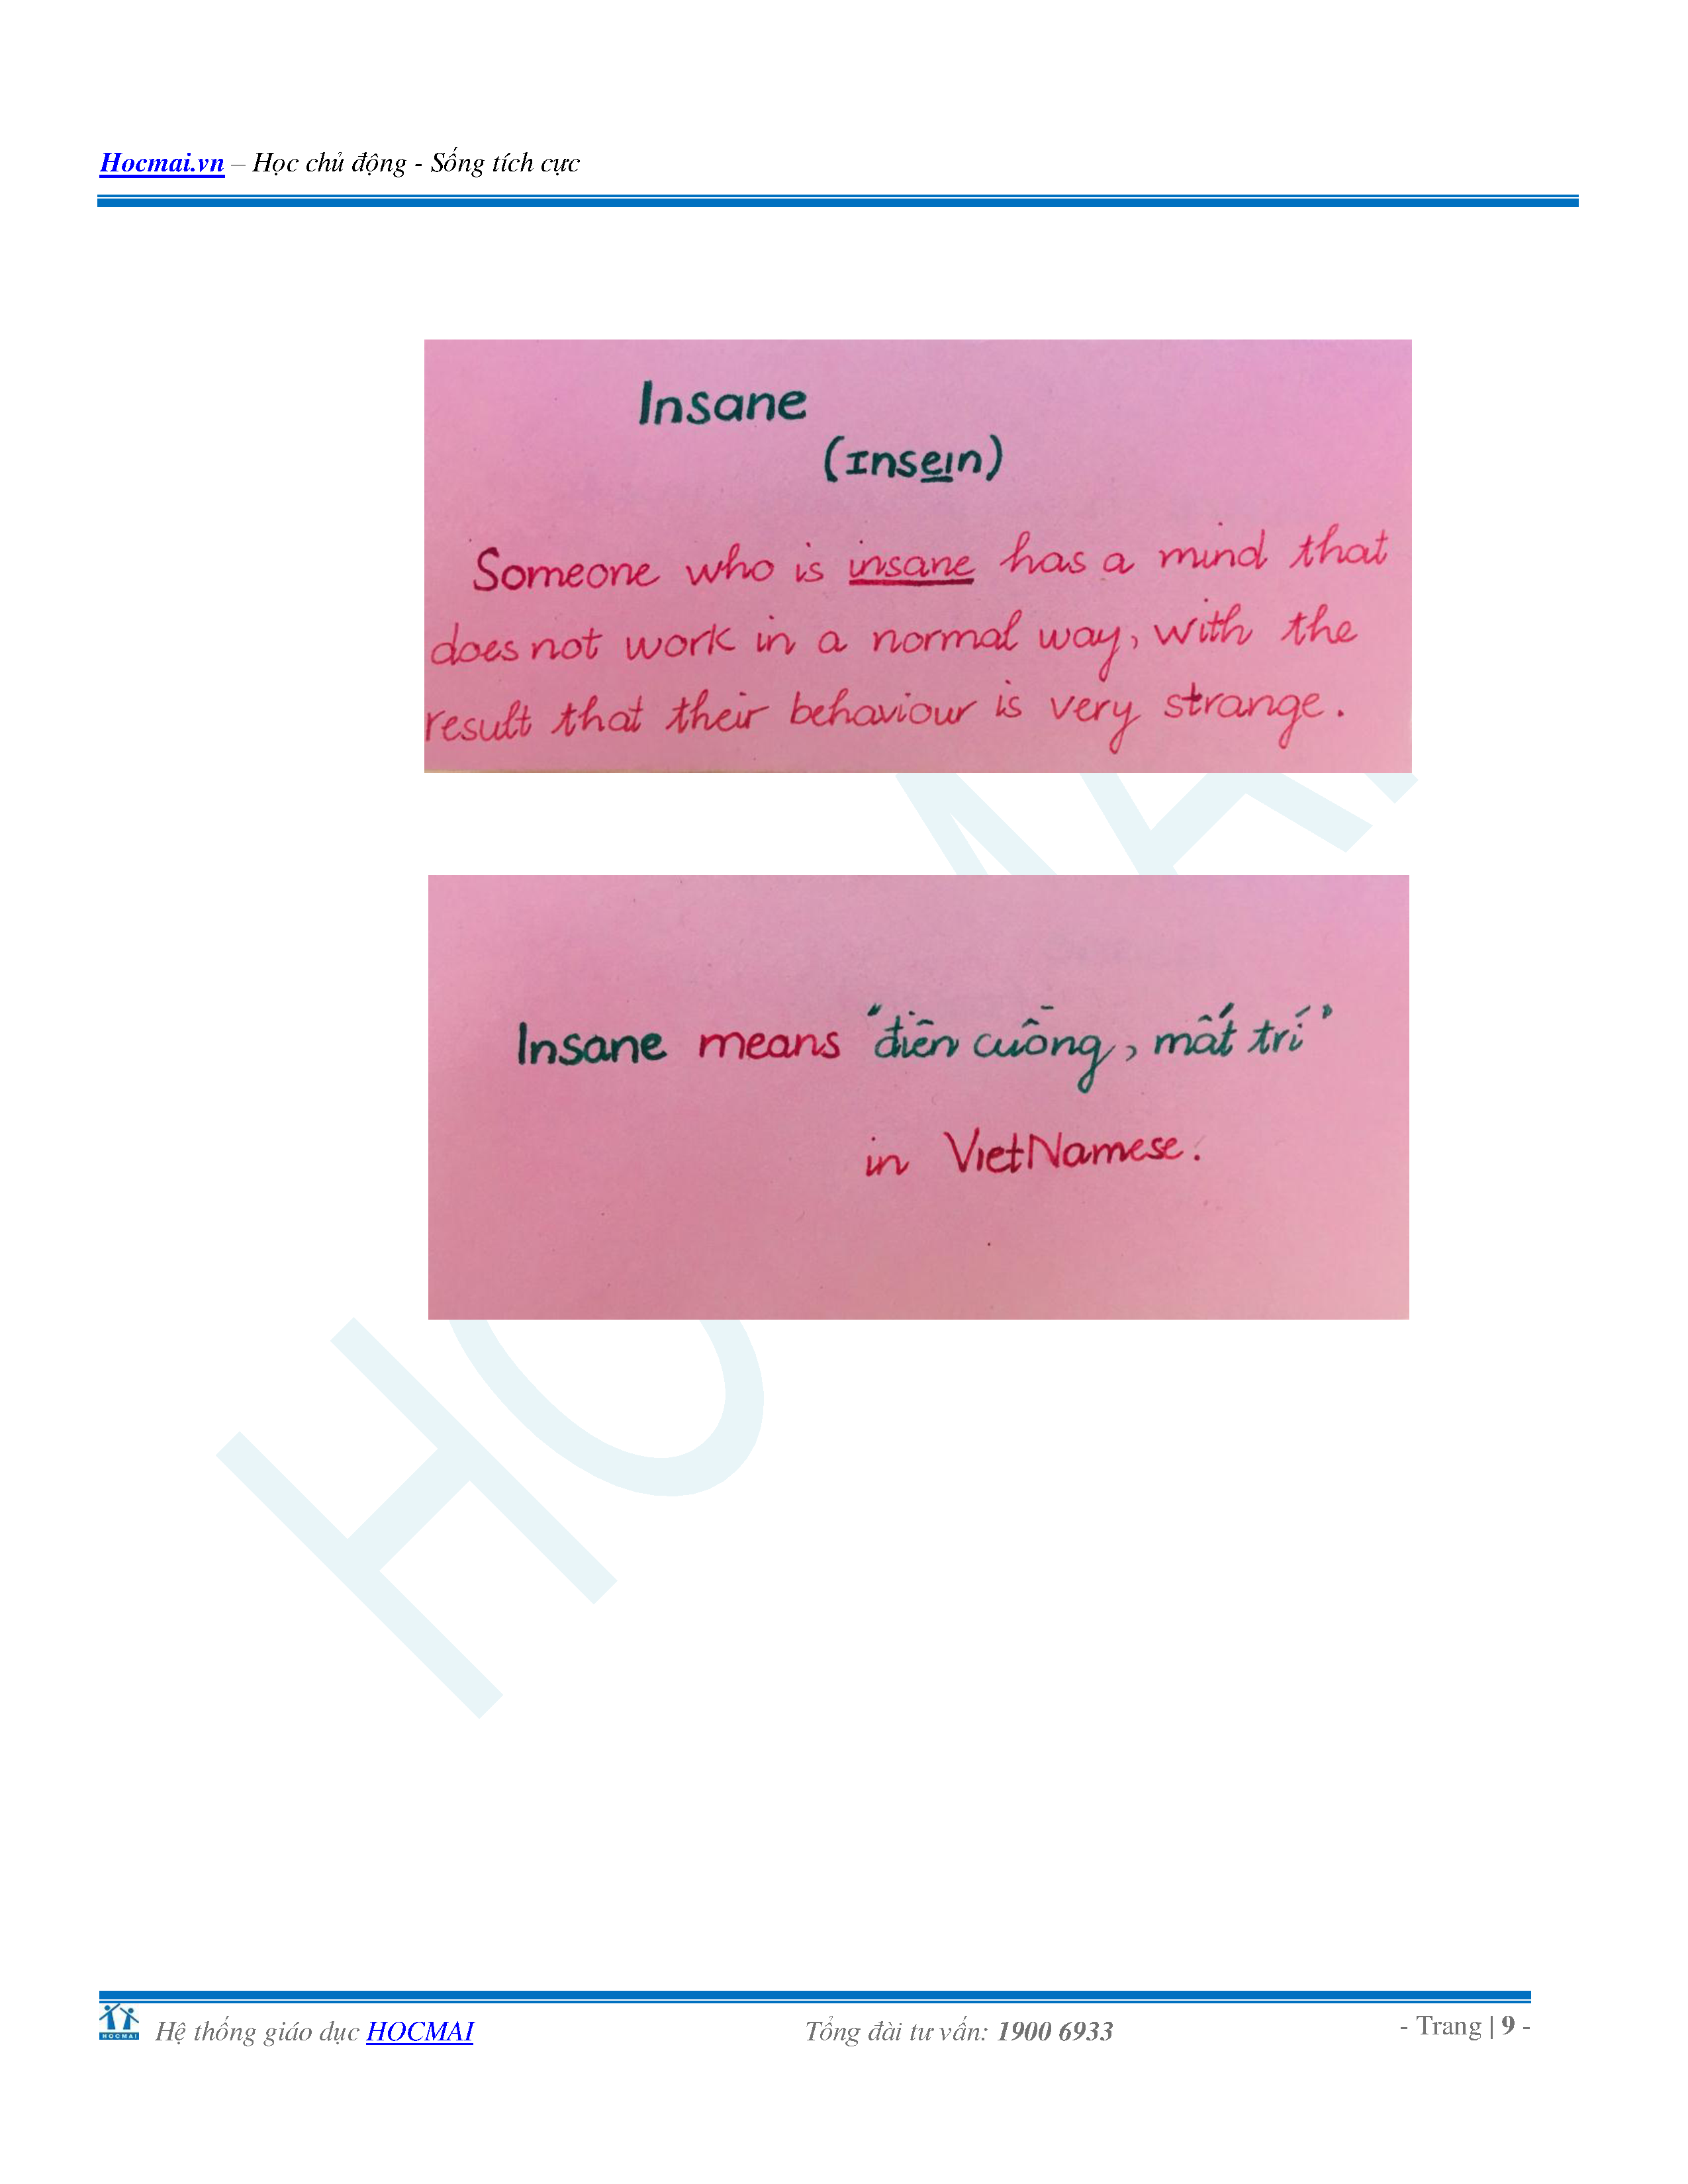 Hocmai.vn – Học chủ động - Sống tích cực
Insane
(Insein)
Someone who is insane has a mind that
does not work in a normal way, with the
result that their behaviour is very strange.
Insane means "điên cuồng, mất trí"
in VietNamese.
HOCMAI
Hệ thống giáo dục HOCMAI
Tổng đài tư vấn: 1900 6933
- Trang | 9 -